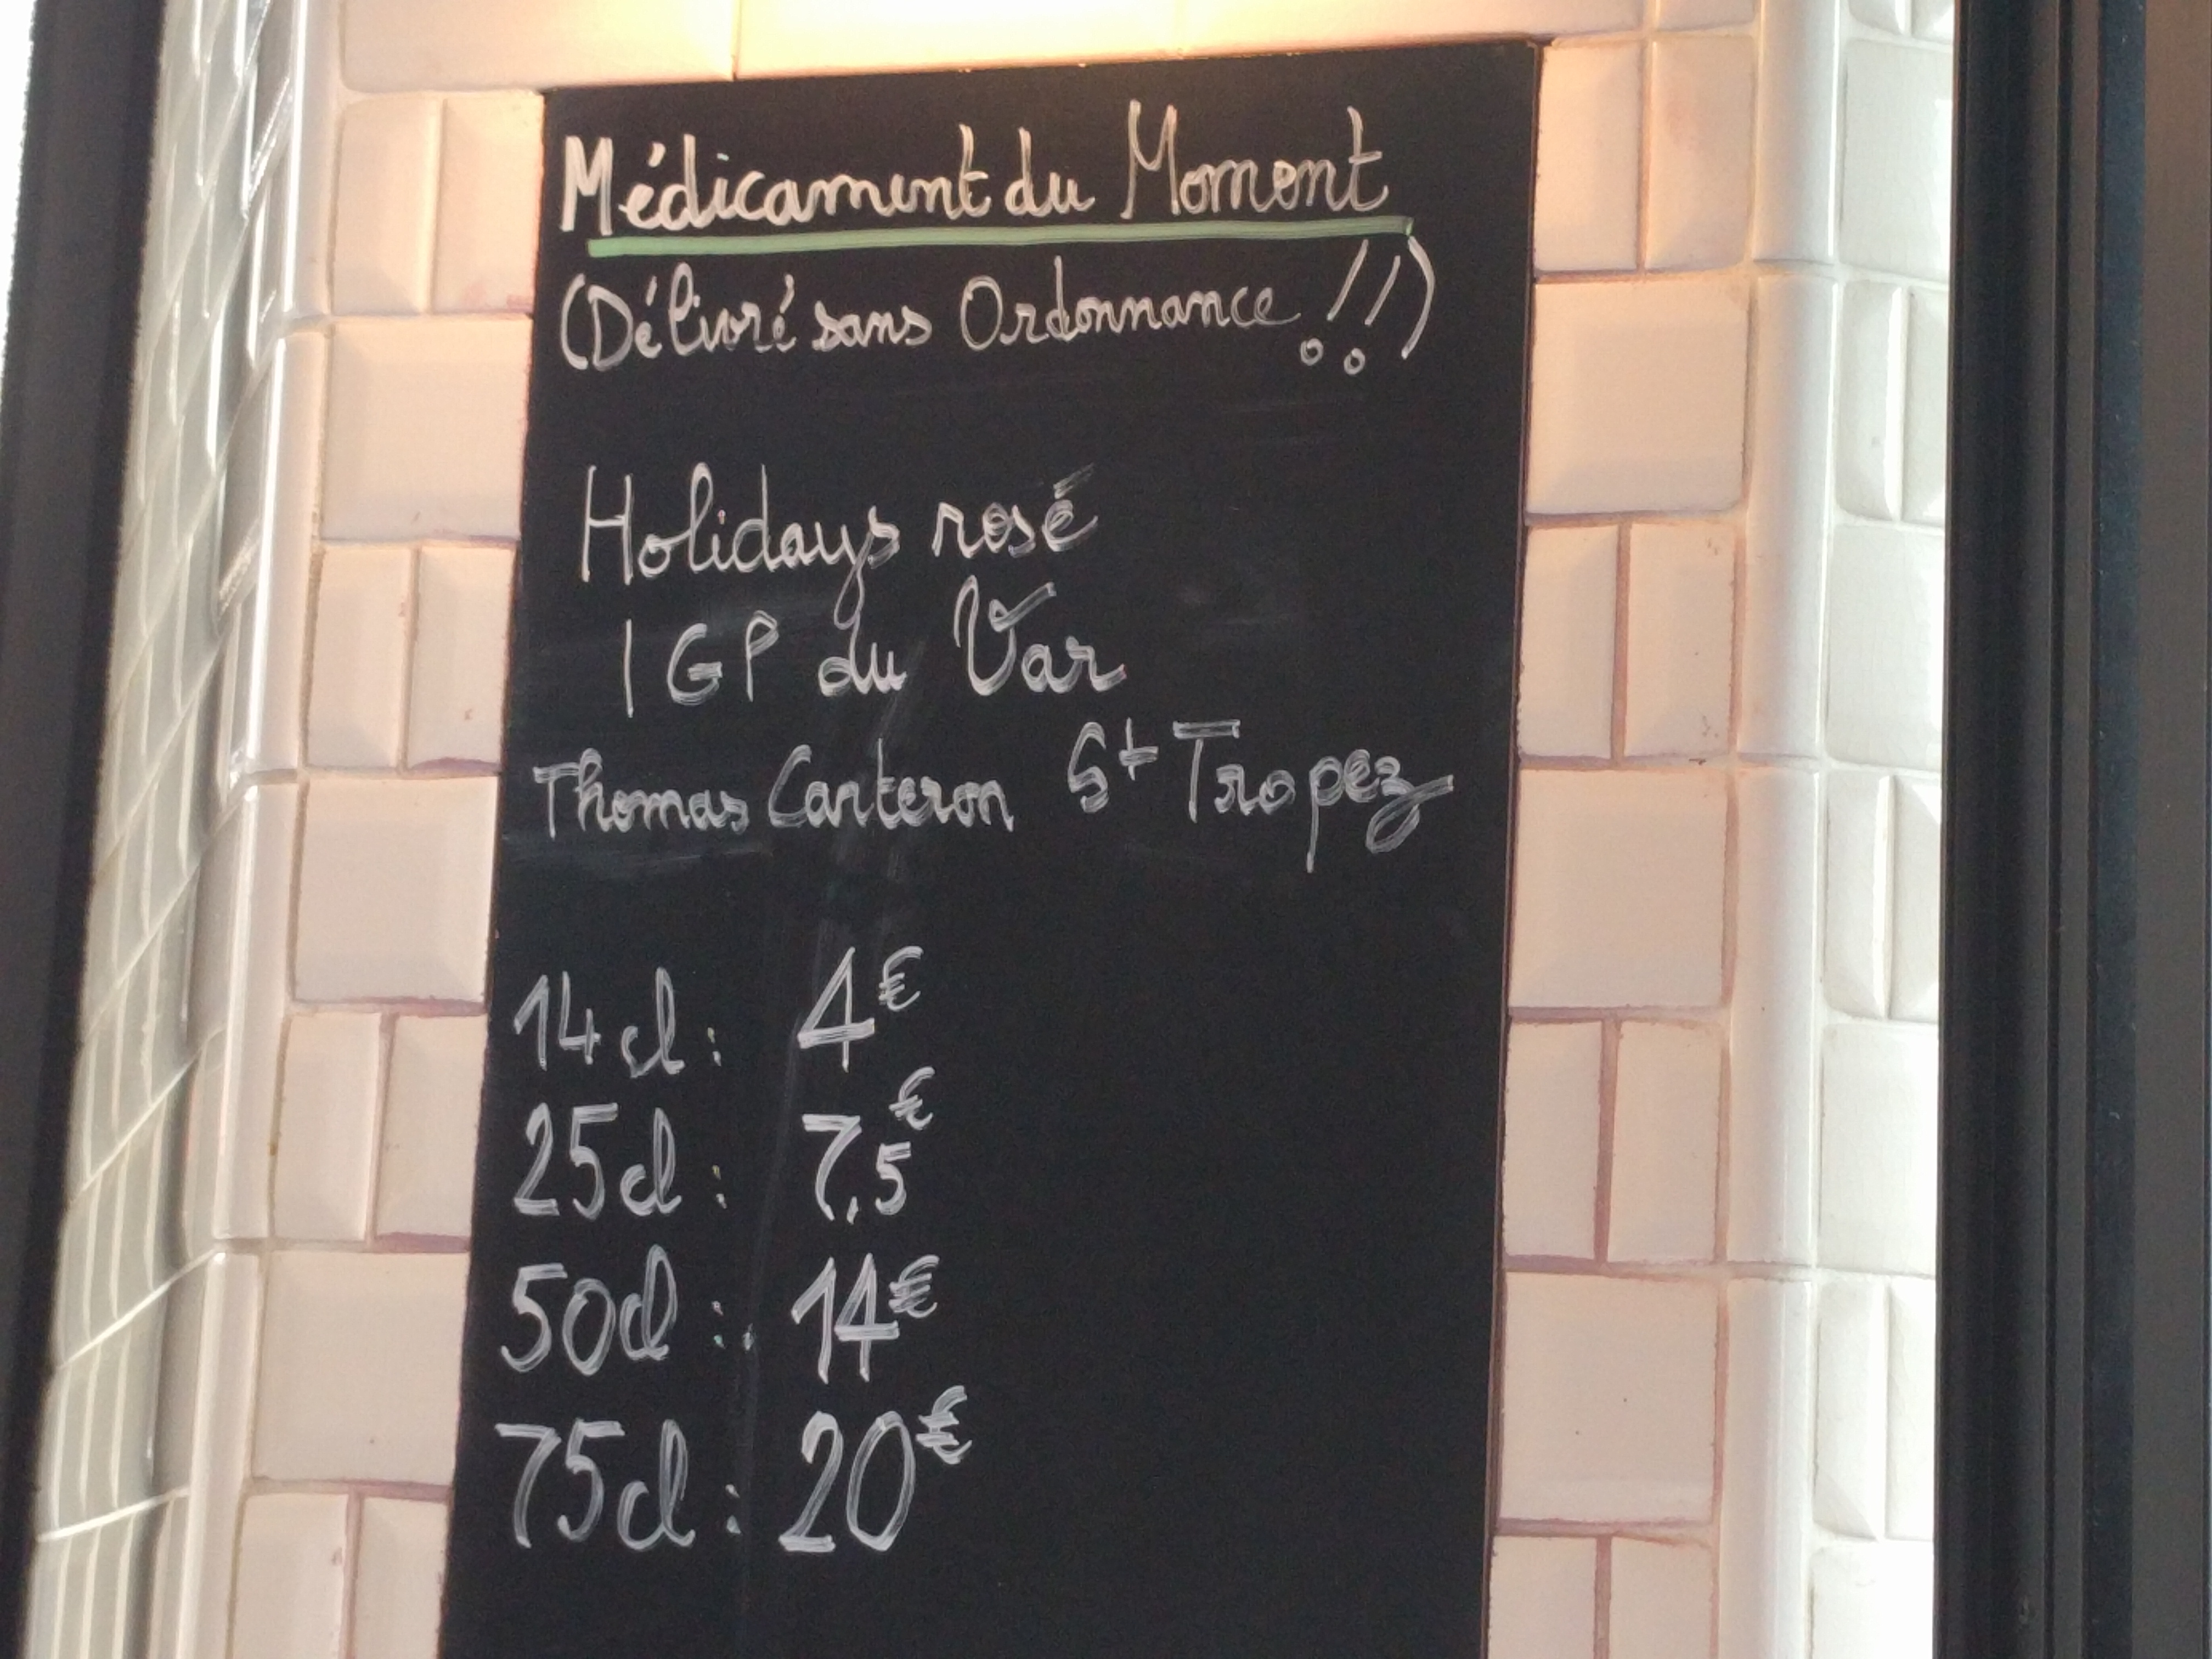 Médicament du Moment
(Délivré sans Ordonnance !!)
Holidays rosé
IGP du Var
Thomas Carteron St Tropez
14cl : 4€
25cl : 7,5€
50cl : 14€
75cl : 20€